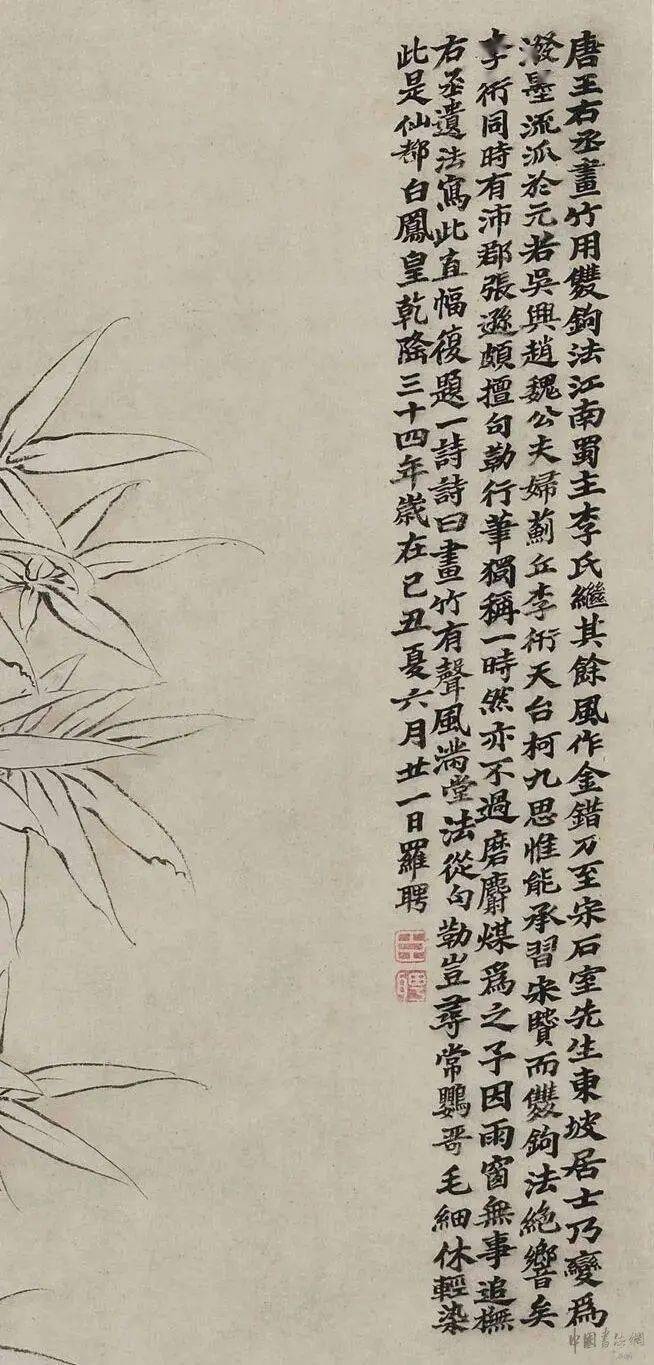 唐王右丞畫竹用雙鉤法江南蜀主李氏繼其餘風作金錯刀至宋石室先生東坡居士乃變為
潑墨流派於元若吳興趙魏公夫婦薊丘李衎天台柯九思惟能承習宋賢而雙鉤法絕響矣
李衎同時有沛郡張遜頗擅句勒行筆獨稱一時然亦不過磨麝煤為之子因雨窗無事追橅
右丞遺法寫此直幅復題一詩詩曰畫竹有聲風滿堂法從句勒豈尋常鸚哥毛細休輕染
此是仙都白鳳皇乾隆三十四年歲在己丑夏六月廿一日羅聘
中國書法網